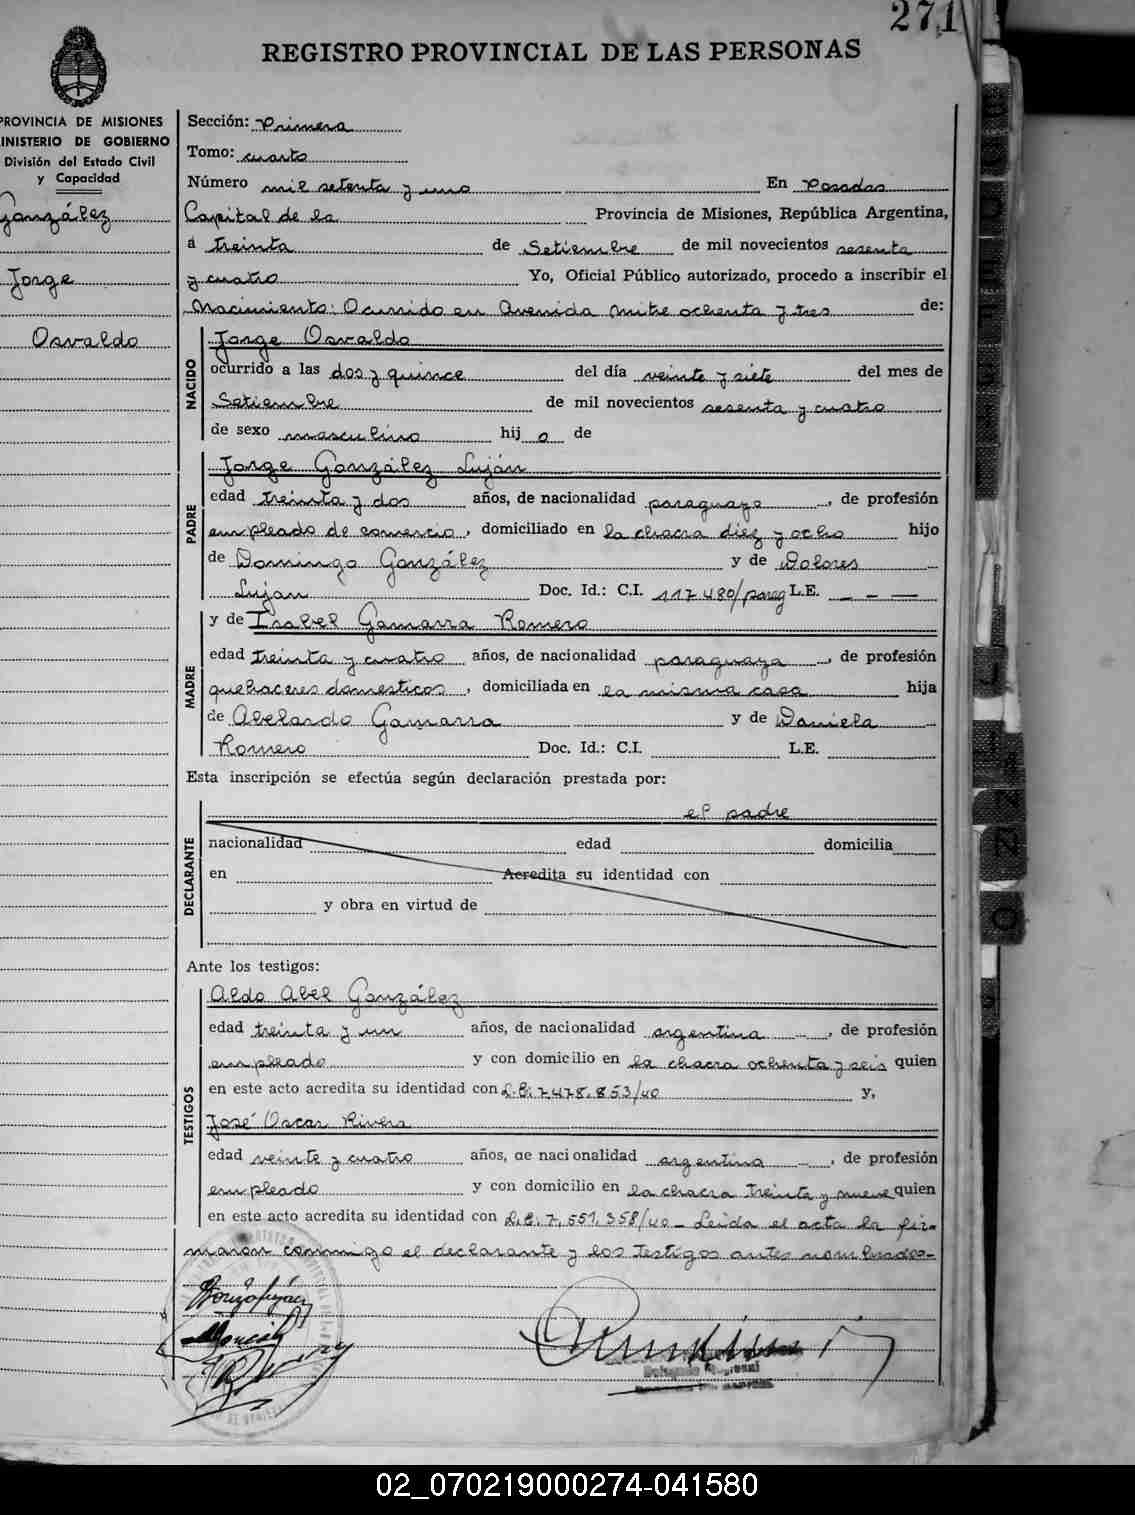 271
REGISTRO PROVINCIAL DE LAS PERSONAS
PROVINCIA DE MISIONES
MINISTERIO DE GOBIERNO
División del Estado Civil
y Capacidad
González
Jorge
Osvaldo
Sección: Primera
Tomo: cuarto
Número mil setenta y uno En Posadas
Capital de la Provincia de Misiones, República Argentina,
a treinta de Setiembre de mil novecientos sesenta
y cuatro Yo, Oficial Público autorizado, procedo a inscribir el
Nacimiento: Ocurrido en Avenida Mitre ochenta y tres de:
NACIDO
Jorge Osvaldo
ocurrido a las dos y quince del día veinte y siete del mes de
Setiembre de mil novecientos sesenta y cuatro
de sexo masculino hij o de
PADRE
Jorge González Luján
edad treinta y dos años, de nacionalidad paraguayo, de profesión
empleado de comercio, domiciliado en la chacra diez y ocho hijo
de Domingo González y de Dolores
Lujan Doc. Id.: C.I. 117480/parag L.E. - - -
y de Isabel Gamarra Romero
MADRE
edad treinta y cuatro años, de nacionalidad paraguaya, de profesión
quehaceres domesticos, domiciliada en la misma casa hija
de Abelardo Gamarra y de Daniela
Romero Doc. Id.: C.I. L.E.
Esta inscripción se efectúa según declaración prestada por:
DECLARANTE
el padre
nacionalidad edad domicilia
en Acredita su identidad con
y obra en virtud de
Ante los testigos:
TESTIGOS
Aldo Abel González
edad treinta y un años, de nacionalidad argentina, de profesión
empleado y con domicilio en la chacra ochenta y seis quien
en este acto acredita su identidad con L.E. 7.478.853/40 y,
José Oscar Rivera
edad veinte y cuatro años, de nacionalidad argentina, de profesión
empleado y con domicilio en la chacra treinta y nueve quien
en este acto acredita su identidad con L.E. 7.551.358/40 - Leída el acta la fir-
maron conmigo el declarante y los testigos antes nombrados-
02_070219000274-041580